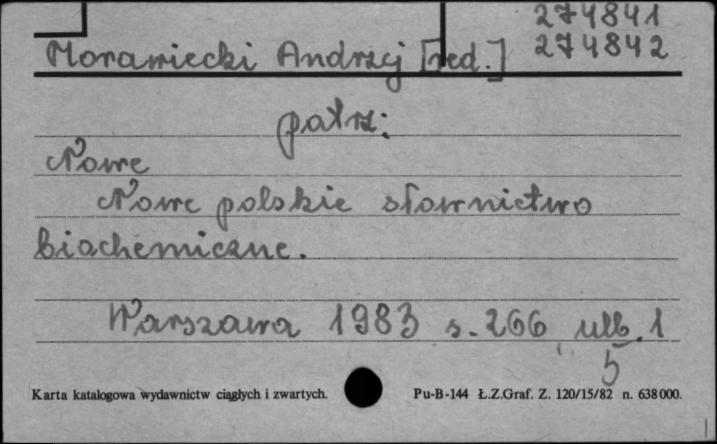 274841
Morawiecki Andrzej [red.] 274842
patrz:
Nowe
Nowe polskie słownictwo
biochemiczne.
Warszawa 1983 s. 266, ulb. 1
5
Karta katalogowa wydawnictw ciągłych i zwartych. Pu-B-144 Ł.Z.Graf. Z. 120/15/82 n. 638000.